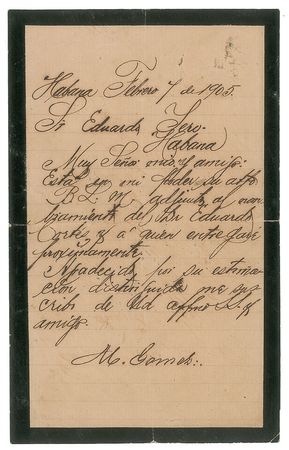 Habana Febrero 7 de 1905.
Sr Eduardo Yero.
Habana
Muy Señor mio y amigo:
Está en mi poder su atto
B. L. M. adjunto al
del Sor Eduardo
Cortés y a quien entregaré
proxímamente.
por su estima
cion distinguida me sus
cribo de Ud affmo S. y
amigo.
M. Gomez.